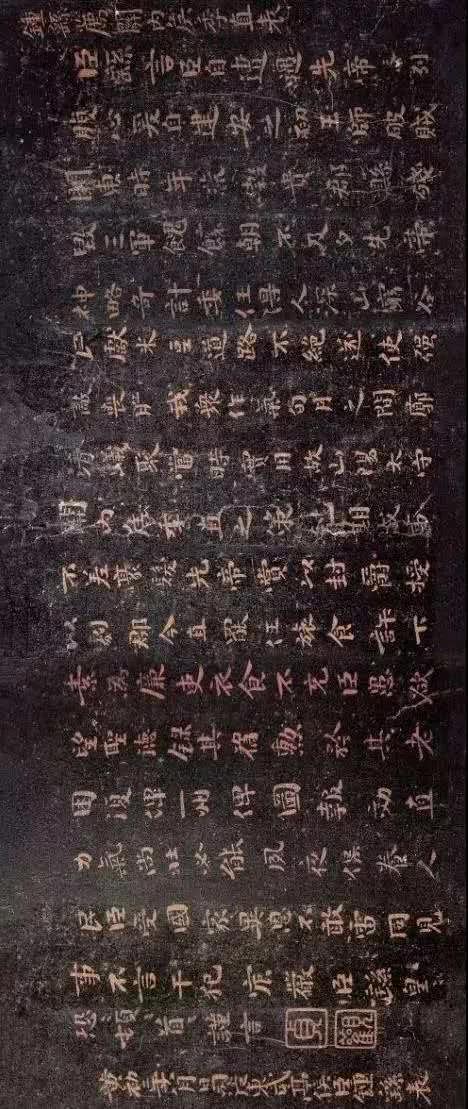 鍾繇薦關內侯季直表
臣繇言臣自遭遇先帝忝列
腹心爰自建安之初王師破賊
關東時年荒穀貴郡縣殘
毀三軍餽饟朝不及夕先帝
神略奇計委任得人深山窮谷
民獻米豆道路不絕遂使強
敵喪膽我眾作氣旬月之間廓
清蟻聚當時實用故山陽太守
關內侯季直之策剋期成事
不差豪髮先帝賞以封爵授
以劇郡今直罷任旅食許下
素為廉吏衣食不充臣愚欲
望聖德錄其舊勳矜其老
困復俾一州俾圖報效直
力氣尚壯必能夙夜保養人
民臣受國家異恩不敢雷同見
事不言干犯宸嚴臣繇皇
恐頓首謹言
貞觀
黃初二年八月日司徒東武亭侯臣鍾繇表